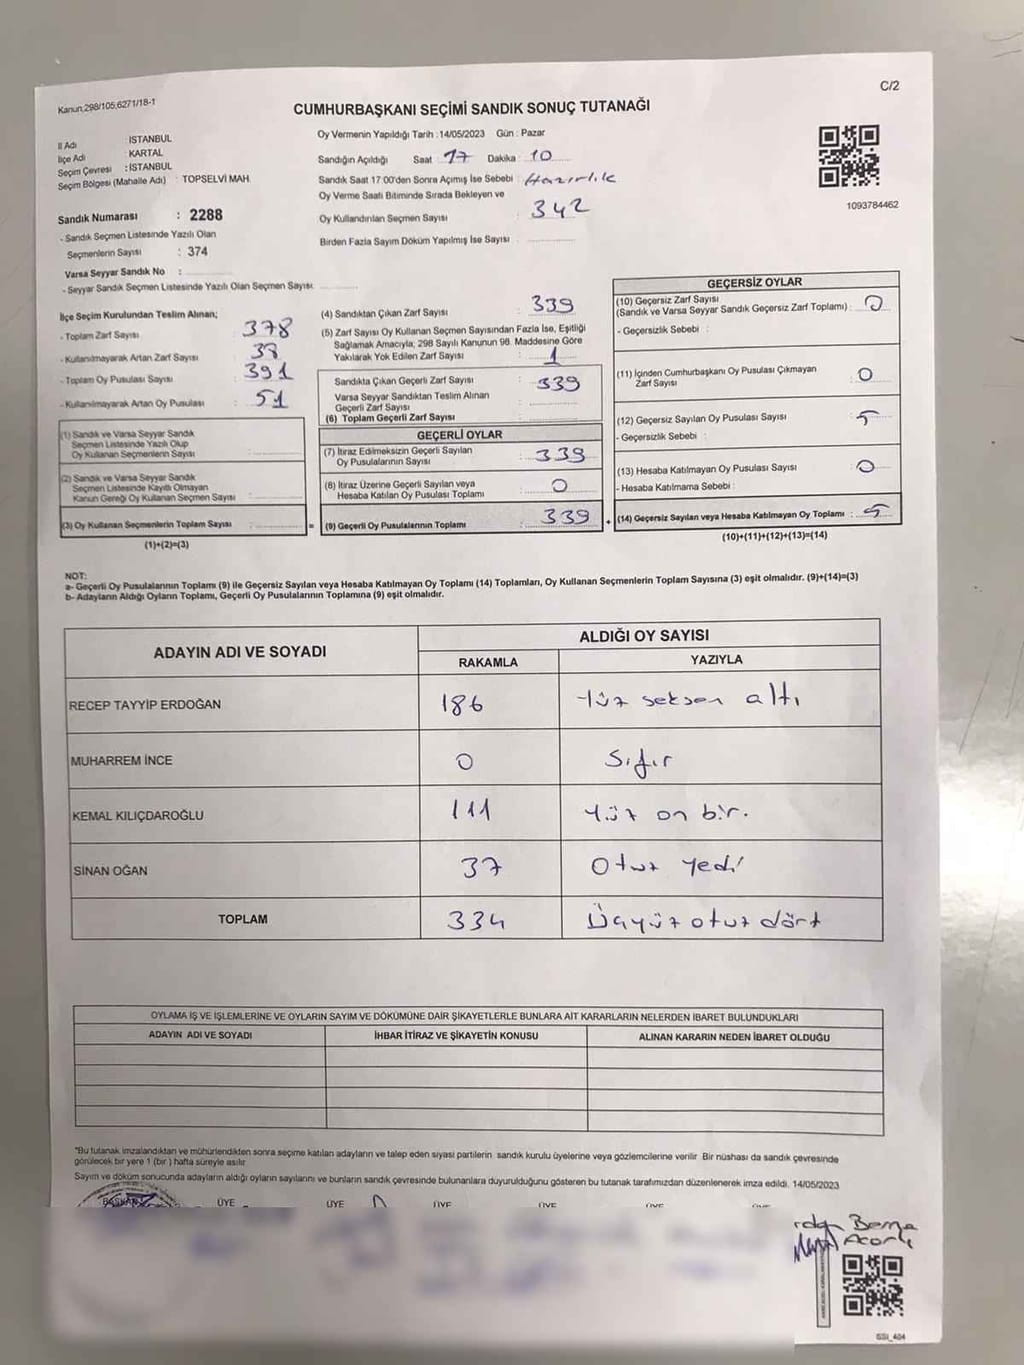 Kanun:298/105;6271/18-1
C/2
CUMHURBAŞKANI SEÇİMİ SANDIK SONUÇ TUTANAĞI
İl Adı : İSTANBUL
İlçe Adı : KARTAL
Seçim Çevresi : İSTANBUL
Seçim Bölgesi (Mahalle Adı) : TOPSELVİ MAH.
Sandık Numarası : 2288
- Sandık Seçmen Listesinde Yazılı Olan
Seçmenlerin Sayısı : 374
Varsa Seyyar Sandık No :
- Seyyar Sandık Seçmen Listesinde Yazılı Olan Seçmen Sayısı:
Oy Vermenin Yapıldığı Tarih : 14/05/2023 Gün : Pazar
Sandığın Açıldığı Saat 17 Dakika : 10
Sandık Saat 17:00'den Sonra Açımış İse Sebebi : Hazırlık
Oy Verme Saati Bitiminde Sırada Bekleyen ve
Oy Kullandırılan Seçmen Sayısı : 342
Birden Fazla Sayım Döküm Yapılmış İse Sayısı :
1093784462
İlçe Seçim Kurulundan Teslim Alınan;
- Toplam Zarf Sayısı : 378
- Kullanılmayarak Artan Zarf Sayısı : 38
- Toplam Oy Pusulası Sayısı : 391
- Kullanılmayarak Artan Oy Pusulası : 51
(1) Sandık ve Varsa Seyyar Sandık
Seçmen Listesinde Yazılı Olup
Oy Kullanan Seçmenlerin Sayısı :
(2) Sandık ve Varsa Seyyar Sandık
Seçmen Listesinde Kayıtlı Olmayan
Kanun Gereği Oy Kullanan Seçmen Sayısı :
(3) Oy Kullanan Seçmenlerin Toplam Sayısı :
(1)+(2)=(3)
(4) Sandıktan Çıkan Zarf Sayısı : 339
(5) Zarf Sayısı Oy Kullanan Seçmen Sayısından Fazla İse, Eşitliği
Sağlamak Amacıyla; 298 Sayılı Kanunun 98. Maddesine Göre
Yakılarak Yok Edilen Zarf Sayısı : 1
Sandıkta Çıkan Geçerli Zarf Sayısı : 339
Varsa Seyyar Sandıktan Teslim Alınan
Geçerli Zarf Sayısı :
(6) Toplam Geçerli Zarf Sayısı :
GEÇERLİ OYLAR
(7) İtiraz Edilmeksizin Geçerli Sayılan
Oy Pusulalarının Sayısı : 339
(8) İtiraz Üzerine Geçerli Sayılan veya
Hesaba Katılan Oy Pusulası Toplamı : 0
= (9) Geçerli Oy Pusulalarının Toplamı : 339 +
GEÇERSİZ OYLAR
(10) Geçersiz Zarf Sayısı
(Sandık ve Varsa Seyyar Sandık Geçersiz Zarf Toplamı) : 0
- Geçersizlik Sebebi :
(11) İçinden Cumhurbaşkanı Oy Pusulası Çıkmayan
Zarf Sayısı : 0
(12) Geçersiz Sayılan Oy Pusulası Sayısı : 5
- Geçersizlik Sebebi :
(13) Hesaba Katılmayan Oy Pusulası Sayısı : 0
- Hesaba Katılmama Sebebi :
(14) Geçersiz Sayılan veya Hesaba Katılmayan Oy Toplamı : 5
(10)+(11)+(12)+(13)=(14)
NOT:
a- Geçerli Oy Pusulalarının Toplamı (9) ile Geçersiz Sayılan veya Hesaba Katılmayan Oy Toplamı (14) Toplamları, Oy Kullanan Seçmenlerin Toplam Sayısına (3) eşit olmalıdır. (9)+(14)=(3)
b- Adayların Aldığı Oyların Toplamı, Geçerli Oy Pusulalarının Toplamına (9) eşit olmalıdır.
ADAYIN ADI VE SOYADI ALDIĞI OY SAYISI
RAKAMLA YAZIYLA
RECEP TAYYİP ERDOĞAN 186 Yüz seksen altı
MUHARREM İNCE 0 Sıfır
KEMAL KILIÇDAROĞLU 111 Yüz on bir.
SİNAN OĞAN 37 Otuz yedi
TOPLAM 334 Üçyüz otuz dört
OYLAMA İŞ VE İŞLEMLERİNE VE OYLARIN SAYIM VE DÖKÜMÜNE DAİR ŞİKAYETLERLE BUNLARA AİT KARARLARIN NELERDEN İBARET BULUNDUKLARI
ADAYIN ADI VE SOYADI İHBAR İTİRAZ VE ŞİKAYETİN KONUSU ALINAN KARARIN NEDEN İBARET OLDUĞU
*Bu tutanak imzalandıktan ve mühürlendikten sonra seçime katılan adayların ve talep eden siyasi partilerin sandık kurulu üyelerine veya gözlemcilerine verilir. Bir nüshası da sandık çevresinde
görülecek bir yere 1 (bir) hafta süreyle asılır.
Sayım ve döküm sonucunda adayların aldığı oyların sayılarını ve bunların sandık çevresinde bulunanlara duyurulduğunu gösteren bu tutanak tarafımızdan düzenlenerek imza edildi. 14/05/2023
BAŞKAN ÜYE ÜYE ÜYE ÜYE ÜYE
Berna
SSI_404